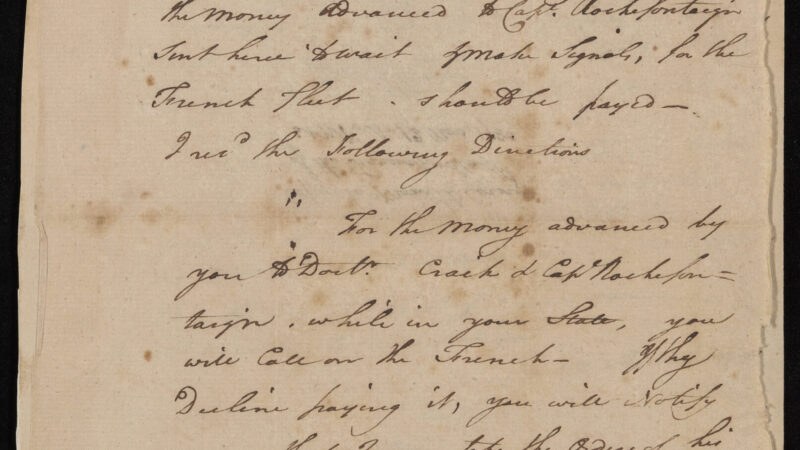 the money advanced to Capt. Rochefontaign
sent here to wait & make Signals, for the
French fleet. should be payed—
I recd the Following Directions
"For the money advanced by
you to Doctr. Craik & Capt Rochefon=
taign. while in your State, you
will Call on the French— If they
Decline paying it, you will Notify
the Orders of his